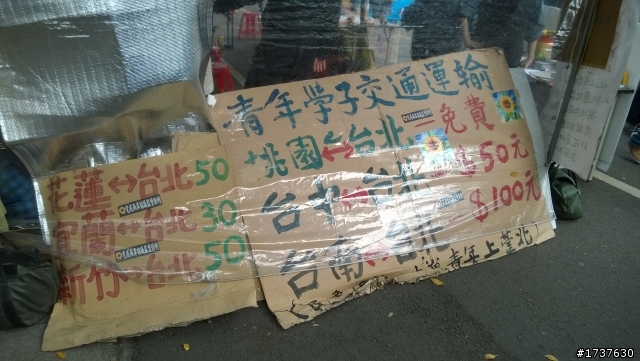 青年學子交通運輸
桃園↔台北=免費
台中↔台北 $50元
台南↔台北 $100元
青年上臺北)
花蓮↔台北50
宜蘭↔台北30
新竹↔台北50
#1737630